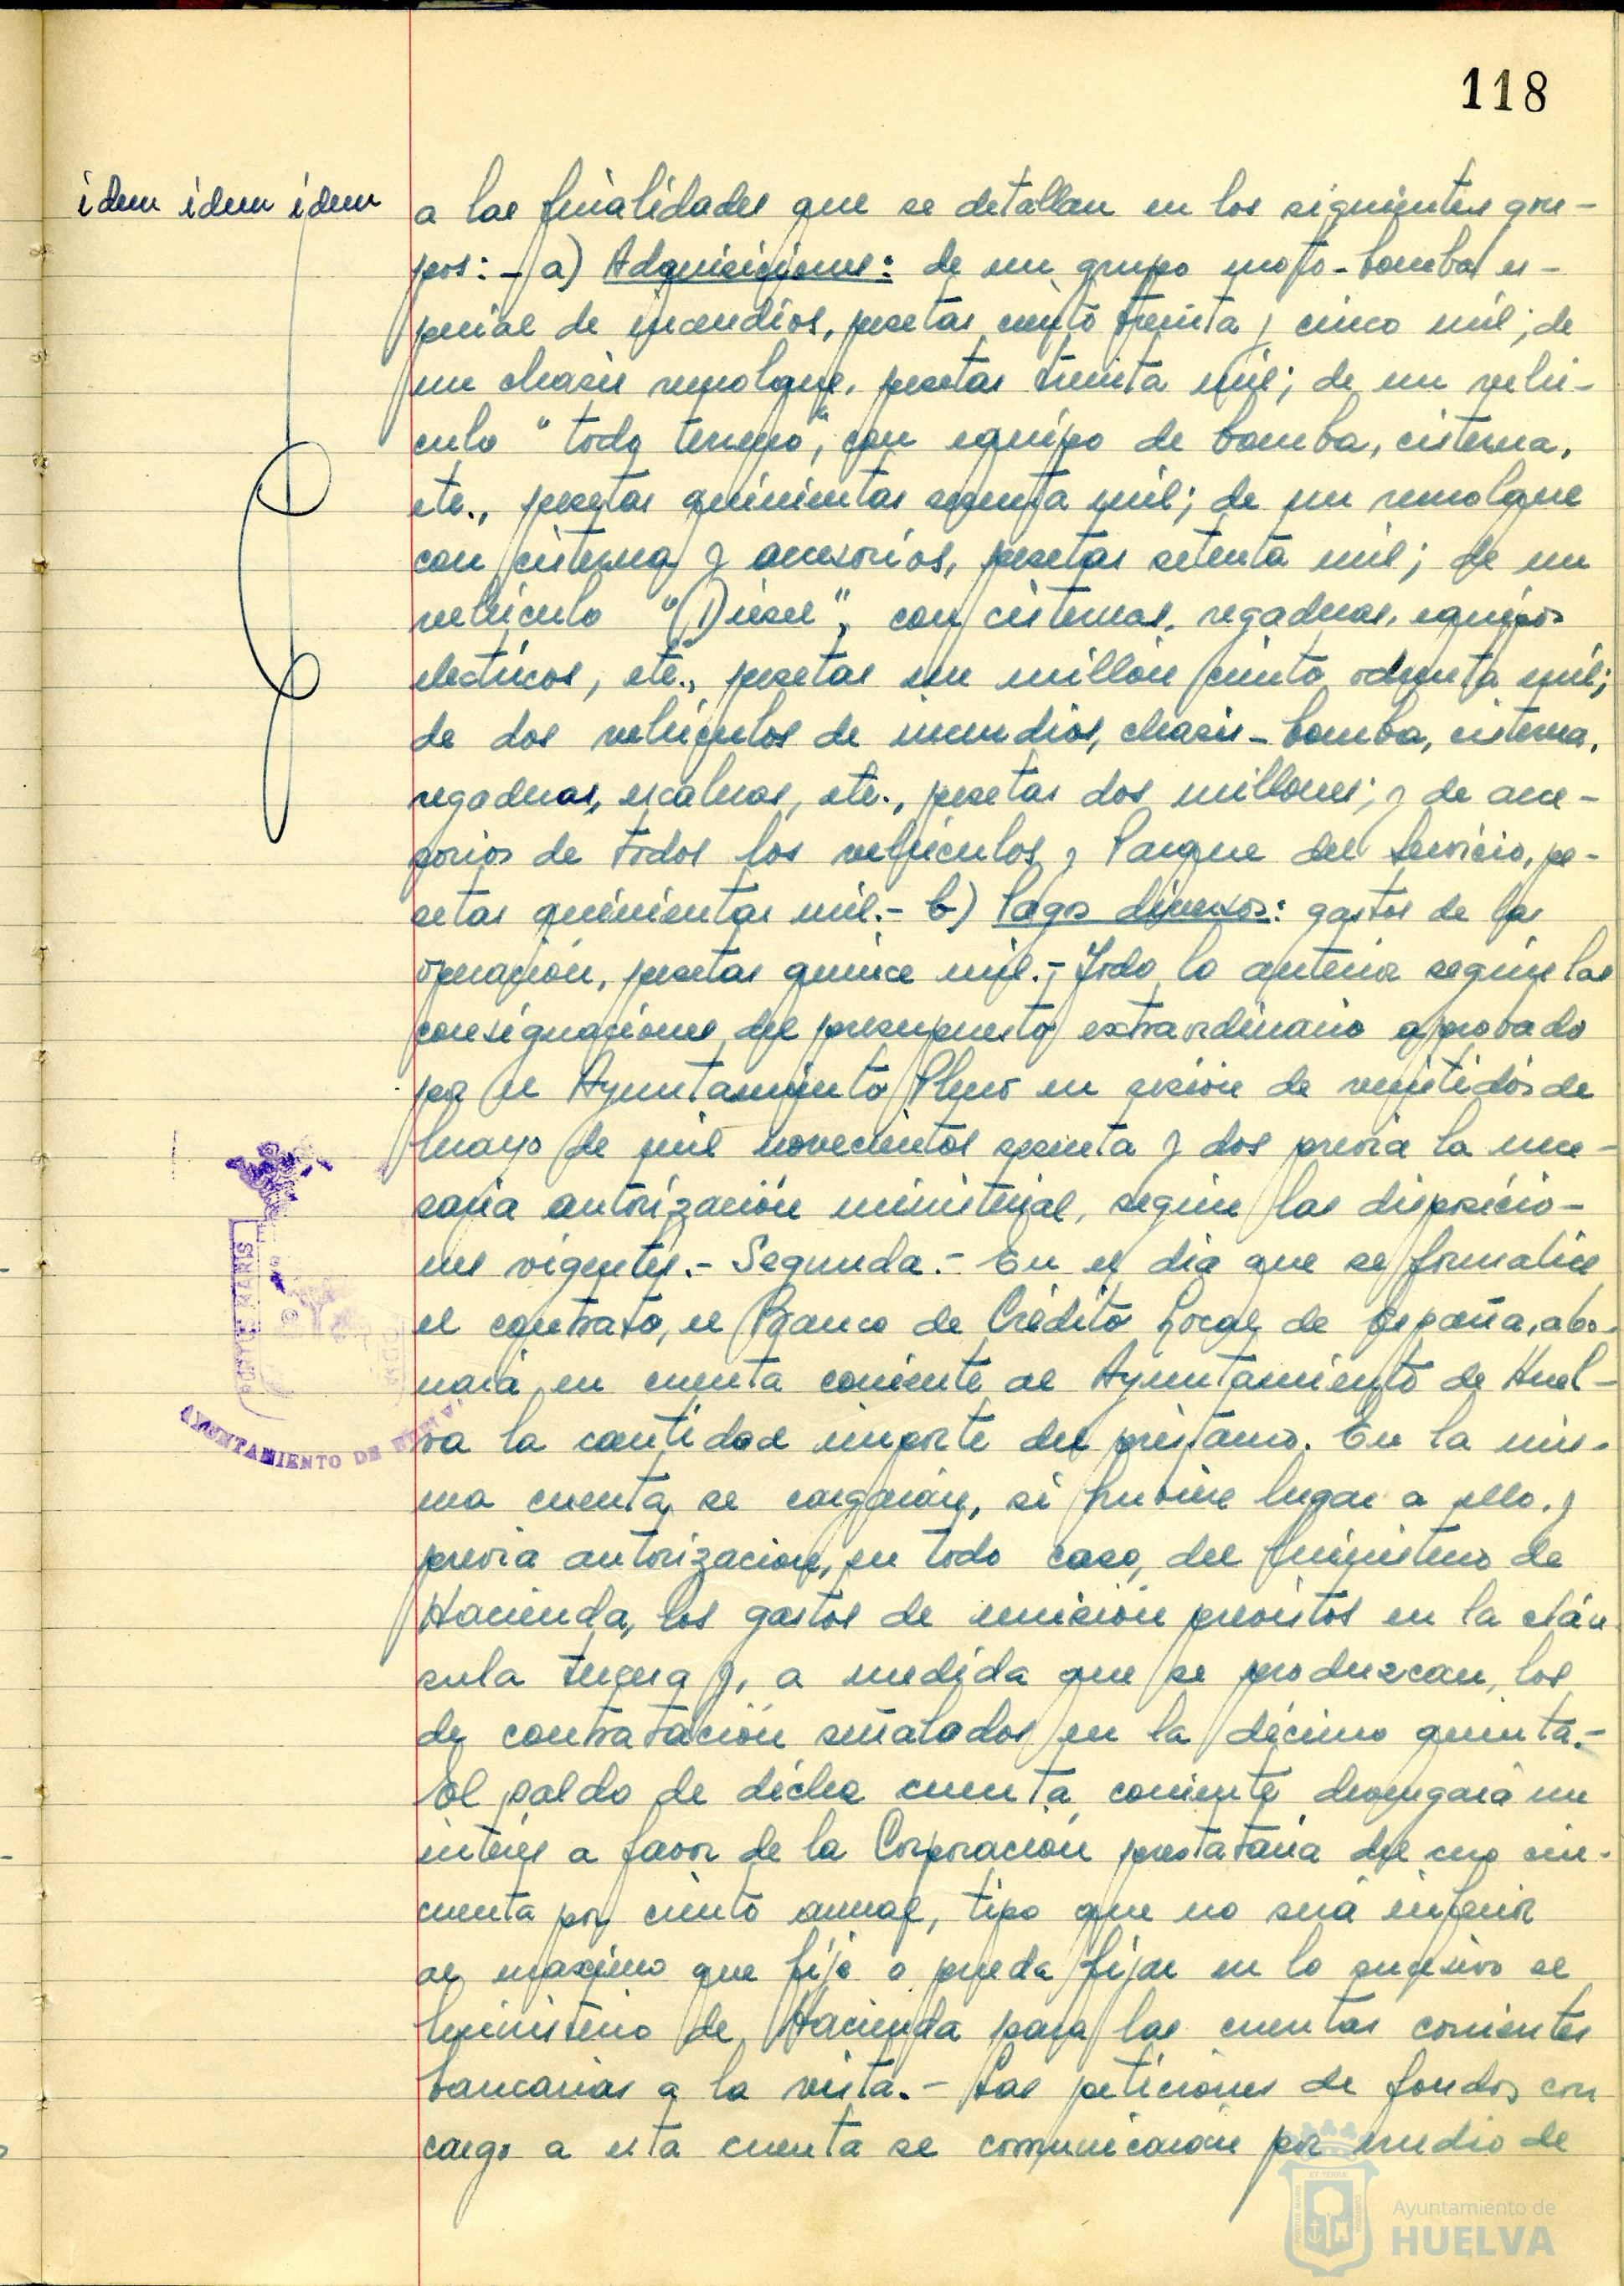 118
idem idem idem
a las finalidades que se detallan en los siguientes gru-
pos: - a) Adquisiciones: de un grupo moto-bomba es-
pecial de incendios, pesetas ciento treinta y cinco mil; de
un chasis remolque, pesetas treinta mil; de un vehí-
culo "todo terreno", con equipo de bomba, cisterna,
etc., pesetas quinientas sesenta mil; de un remolque
con cisterna y accesorios, pesetas setenta mil; de un
vehículo "Diesel", con cisternas, regaderas, equipos
electricos, etc., pesetas un millón ciento ochenta mil;
de dos vehículos de incendios, chasis-bomba, cisterna,
regaderas, escaleras, etc., pesetas dos millones; y de acce-
sorios de todos los vehículos y Parque del Servicio, pe-
setas quinientas mil.- b) Pagos diversos: gastos de la
operación, pesetas quince mil.- Todo lo anterior según las
consignaciones del presupuesto extraordinario aprobado
por el Ayuntamiento Pleno en sesión de veintidós de
Mayo de mil novecientos sesenta y dos previa la nece-
saria autorización ministerial, según las disposicio-
nes vigentes.- Segunda.- En el día que se formalice
el contrato, el Banco de Crédito Local de España, abo-
nará en cuenta corriente al Ayuntamiento de Huel-
va la cantidad importe del préstamo. En la mis-
ma cuenta se cargarán, si hubiere lugar a ello, y
previa autorización, en todo caso, del Ministerio de
Hacienda, los gastos de emisión previstos en la cláu
sula tercera y, a medida que se produzcan, los
de contratación señalados en la décimo quinta.-
El saldo de dicha cuenta corriente devengará un
interés a favor de la Corporación prestataria del cero cin-
cuenta por ciento anual, tipo que no será inferior
al máximo que fije o pueda fijar en lo sucesivo el
Ministerio de Hacienda para las cuentas corrientes
bancarias a la vista.- Las peticiones de fondos con
cargo a esta cuenta se comunicarán por medio de
PORTUS MARIS
AYUNTAMIENTO DE HUELVA
Ayuntamiento de
HUELVA